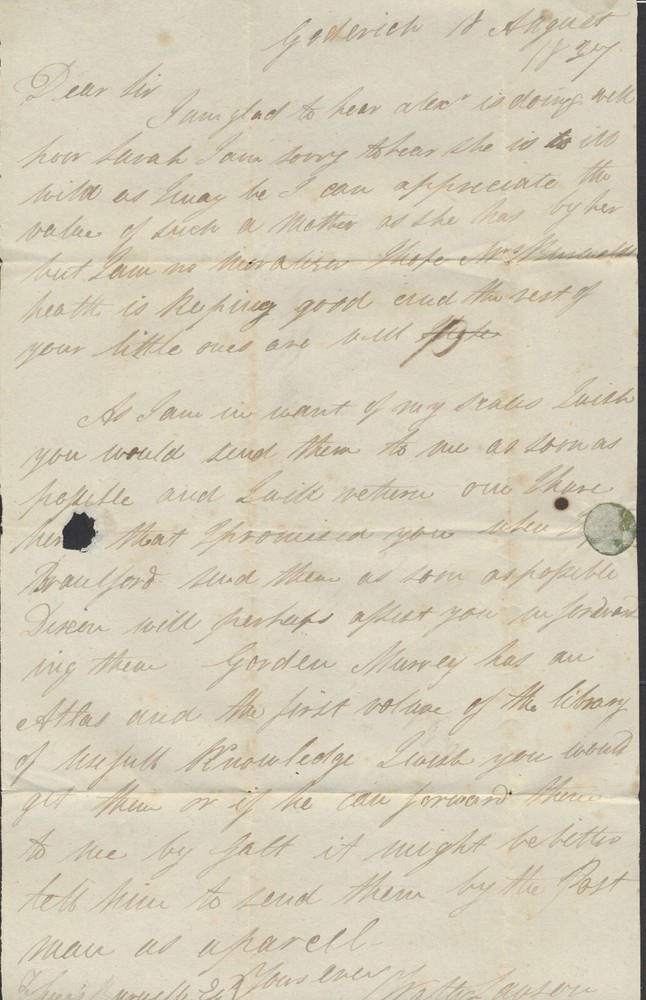 Goderich 18 August
1837
Dear Sir
I am glad to hear Alexr is doing well
poor Sarah I am sorry to hear she is so ill
wild as I may be I can appreciate the
value of such a Mother as she has by her
but I am no moraliser I hope Mrs
heath is keping good and the rest of
your little ones are well
As I am in want of my I wish
you would send them to me as soon as
possible and I will return one I have
here that I promised you when
Brantford send them as soon as possible
Dixon will perhaps assist you in forward
ing them Gorden Murrey has an
Atlas and the first volume of the library
of usefull Knowledge I wish you would
get them or if he can forward them
to me by Galt it might be better
tell him to send them by the Post
man as a parcell
Yours ever